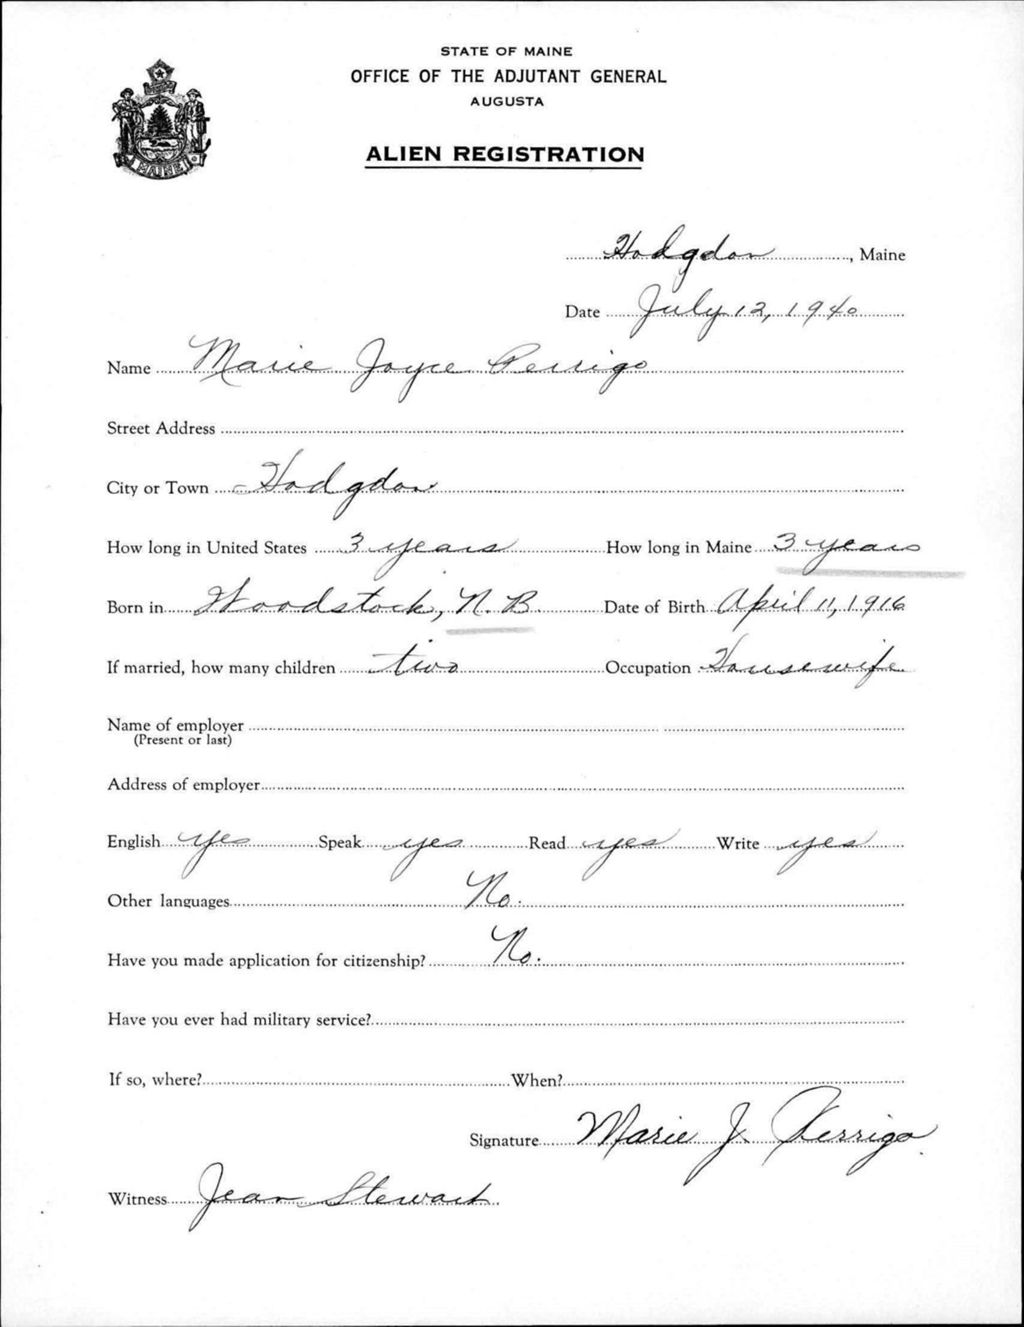 STATE OF MAINE
OFFICE OF THE ADJUTANT GENERAL
AUGUSTA
ALIEN REGISTRATION
MAINE
Hodgdon, Maine
Date July 12, 1940
Name Marie Joyce Perrigo
Street Address
City or Town Hodgdon
How long in United States 3 years How long in Maine 3 years
Born in Woodstock, N. B. Date of Birth April 11, 1916
If married, how many children two Occupation Housewife
Name of employer
(Present or last)
Address of employer
English yes Speak yes Read yes Write yes
Other languages No.
Have you made application for citizenship? No.
Have you ever had military service?
If so, where? When?
Signature Marie J. Perrigo
Witness Jean Stewart